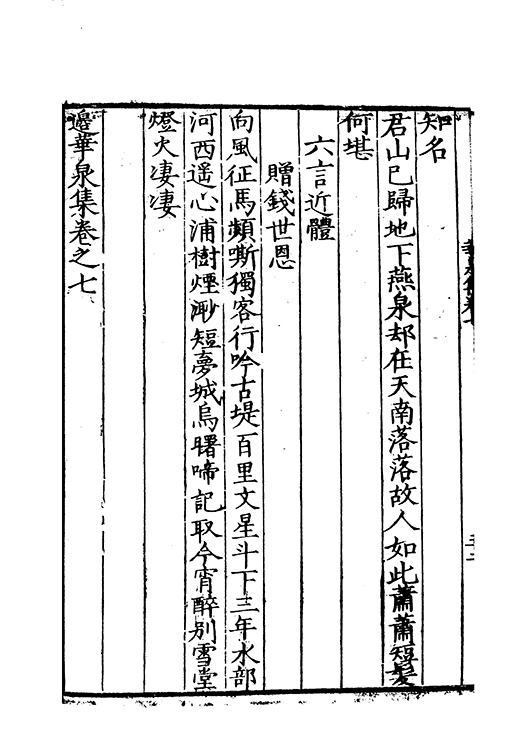 知名
君山已歸地下燕泉却在天南落落故人如此蕭蕭短髪
何堪
六言近體
贈錢世恩
向風征馬頻嘶獨客行吟古堤百里文星斗下三年水部
河西遥心浦樹煙渺短夢城烏曙啼記取今宵醉别雪堂
燈火凄凄
邊華泉集卷之七